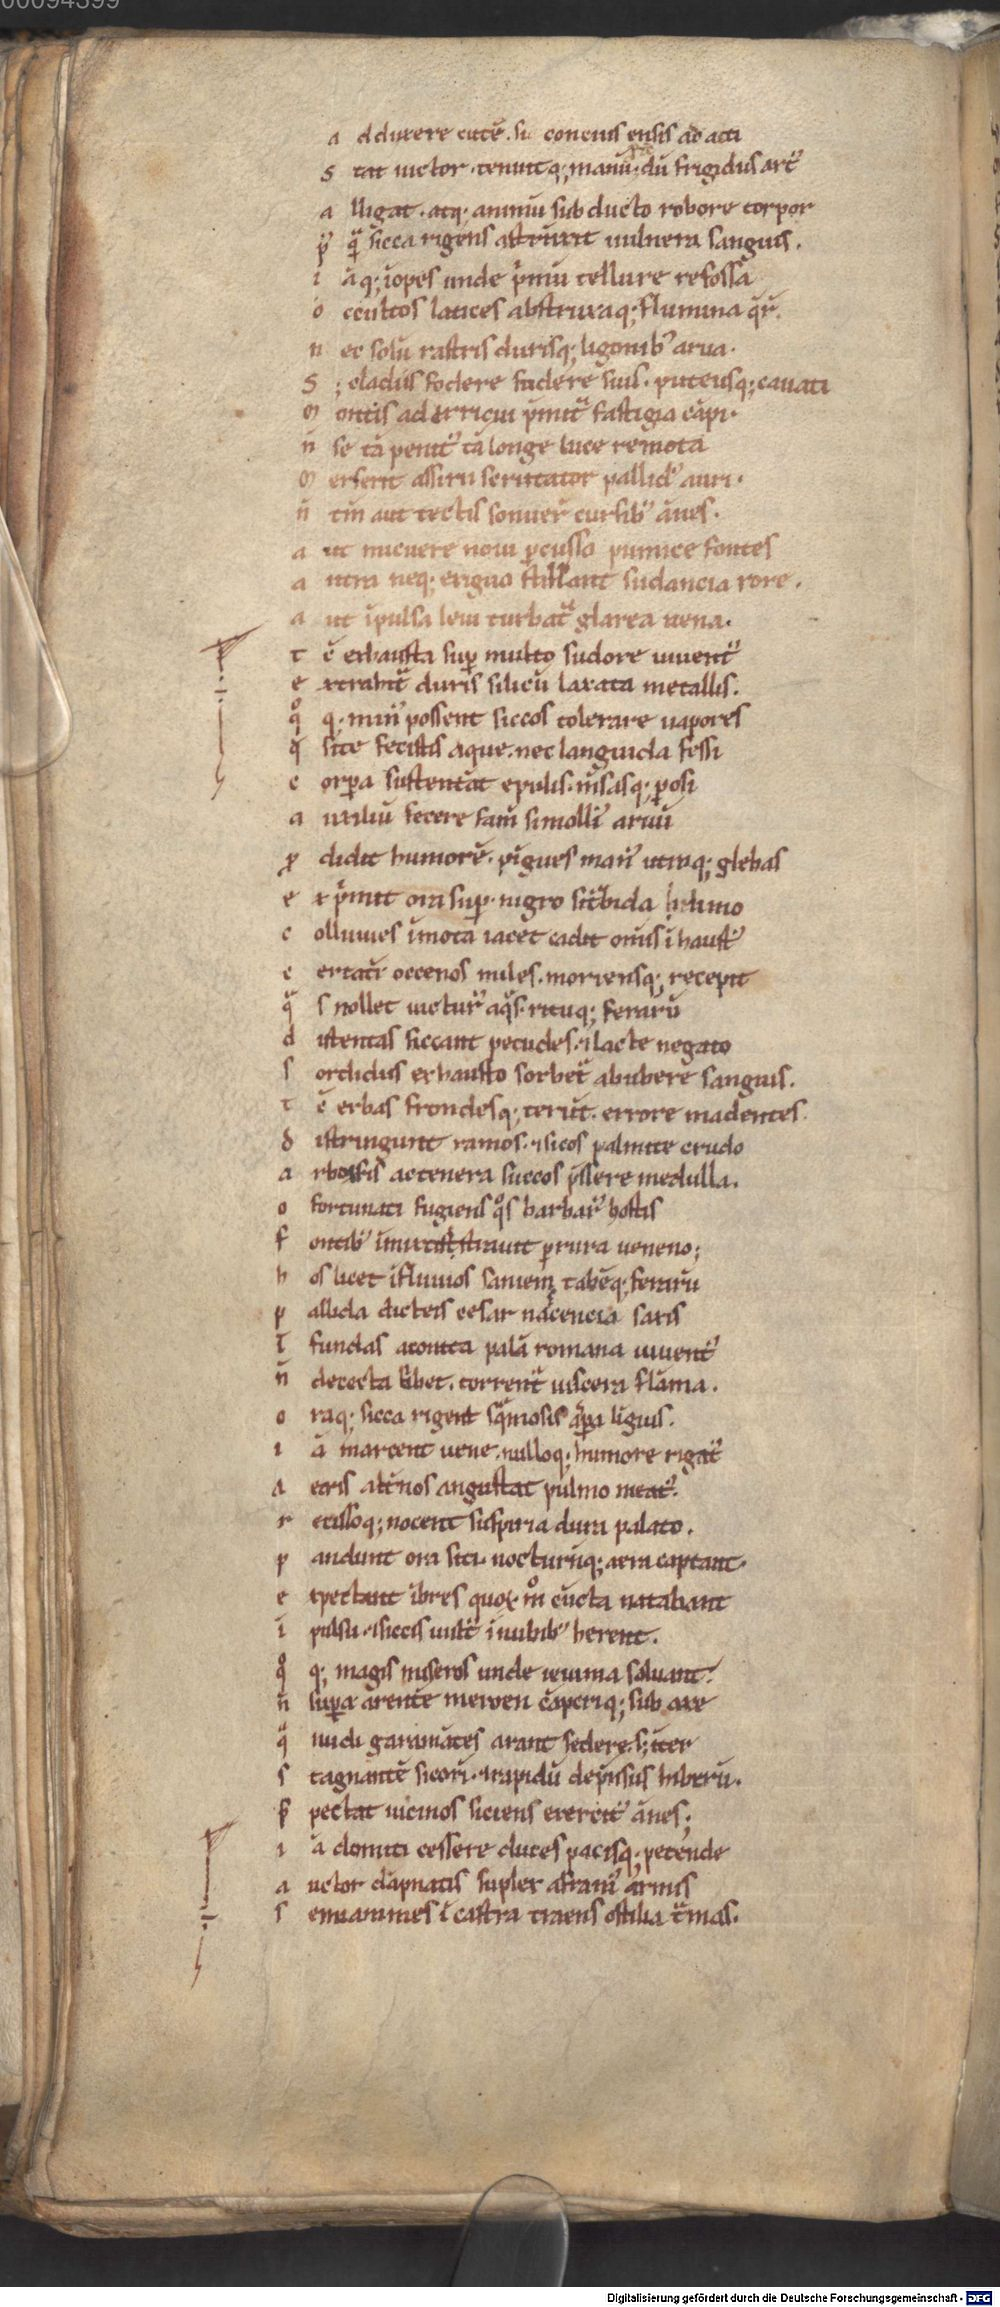 00094399
a dduxere cutē. si concius ensis ad acti
S tat uictor. tenuitq; manū. dū frigidus art᷒
a lligat. atq; animū sub ducto robore torpor
p̄ qͣ sicca rigens astrinxit uulnera sanguis.
i āq; īopes unde p̄mū tellure refossa
o ccultos latices abstrusaq; flumina qr̄.
n ec solū rastris durisq; ligonib᷒ arua.
S ; gladiis fodere suis. puteusq; cauati
m ontis ad irrigui p̄mit᷒ fastigia cāpi.
n̄ se tā penit᷒ tā longe luce remota
m erserit assirii scrutator pallid᷒ auri.
n̄ tm̄ aut tectis sonuer̄ cursib᷒ ānes.
a ut micuere noui pcusso pumice fontes
a ntra neq; exiguo stillant sudancia rore.
a ut īpulsa leui turbat᷒ glarea uena.
t c̄ exhausta sup multo sudore iuuent᷒
e xtrahit᷒ duris silicū laxata metallis.
qͦ q; min᷒ possent siccos tolerare uapores
q̄ site fecistis aque. nec languida fessi
c orpa sustentāt epulis. m̄sasq; posi
a uxiliū fecere famē si mollio᷒ aruū
p didit humorē. pīgues man᷒ utraq; glebas
e x p̄mit ora sup. nigro si t᷒bida limo
c olluuies īmota iacet cadit om̄is ī haust᷒
c ertatī occenos miles. moriensq; recepit
qͣ s nollet uictur᷒ aqͣs. rituq; ferarū
d istentas siccant pecudes. ⁊ lacte negato
s ordidus exhausto sorbet᷒ ab ubere sanguis.
t c̄ erbas frondesq; terūt. ⁊ rore madentes
d istringunt ramos. ⁊ sicos palmite crudo
a rboris ac tenera succos p̄ssere medulla.
o fortunati fugiens qͦs barbar᷒ hostis
f ontib᷒ īmixto strauit p rura ueneno;
h os licet ī fluuios saniem tabēq; ferarū
p allida dicteis cesar nascencia saxis
ī fundas aconita palā romana iuuent᷒
n̄ decepta bibet. torrent᷒ uiscera flāma.
o raq; sicca rigent sqͣmosis aspa līguis.
i ā marcent uene. nulloq; humore rigat᷒
a eris alt᷒nos angustat pulmo meat᷒.
r ecissoq; nocent suspiria dura palato.
p andunt ora siti. nocturnūq; aera captant.
e xpectant ībres quoꝝ m̊ cūcta natabant
i pulsu. ⁊ siccis uult᷒ ī nubib᷒ herent.
qͦ q; magis miseros unde ieiuna soluant.
n̄ supra arentē meroen cācriq; sub axe
qͣ nudi garamātes arant sedere. s; iter
s tagnantē sicorī. ⁊ rapidū dep̄nsus hiberū.
s pectat uicinos siciens exercit᷒ āues;
i ā domiti cessere duces pacisq; petende
a uctor dāpnatis suplex afrani᷒ armis
s emianimes ī castra traens ostilia t᷒mas.
Digitalisierung gefördert durch die Deutsche Forschungsgemeinschaft - DFG